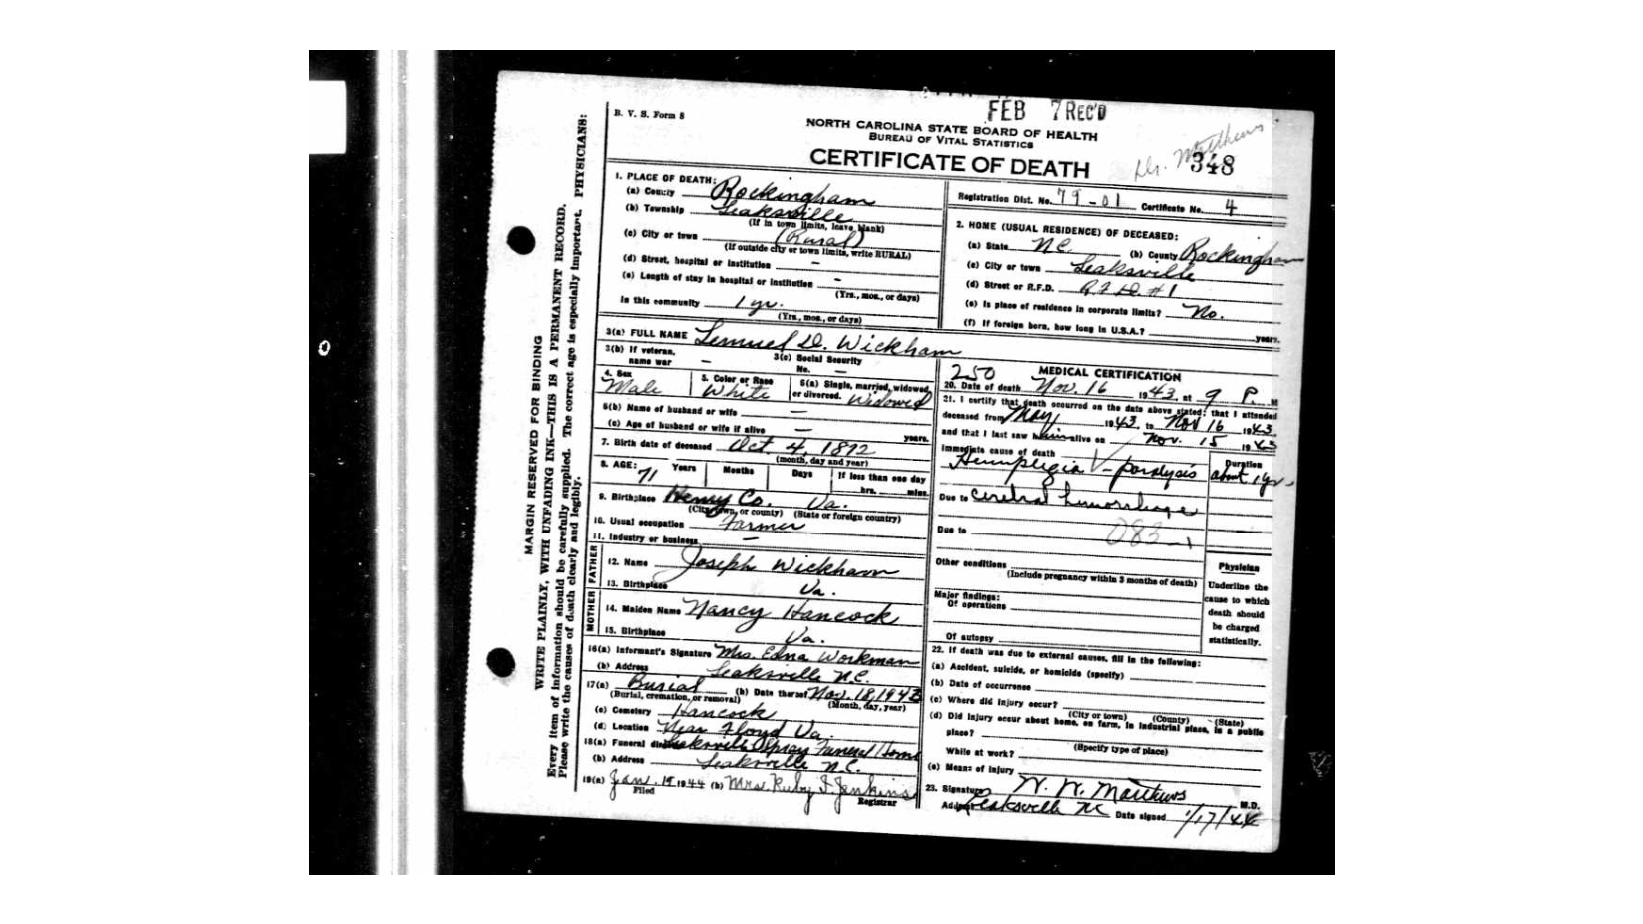 FEB 7 REC'D
B. V. S. Form 8
NORTH CAROLINA STATE BOARD OF HEALTH
BUREAU OF VITAL STATISTICS
CERTIFICATE OF DEATH
Dr. Matthews
348
MARGIN RESERVED FOR BINDING
WRITE PLAINLY, WITH UNFADING INK—THIS IS A PERMANENT RECORD.
Every item of information should be carefully supplied. The correct age is especially important. PHYSICIANS:
Please write the causes of death clearly and legibly.
1. PLACE OF DEATH:
(a) County Rockingham
(b) Township Leaksville
(If in town limits, leave blank)
(c) City or town (Rural)
(If outside city or town limits, write RURAL)
(d) Street, hospital or institution –
(e) Length of stay in hospital or institution –
(Yrs., mos., or days)
In this community 1 yr.
(Yrs., mos., or days)
Registration Dist. No. 79-01 Certificate No. 4
2. HOME (USUAL RESIDENCE) OF DECEASED:
(a) State N.C. (b) County Rockingham
(c) City or town Leaksville
(d) Street or R.F.D. R.F.D. #1
(e) Is place of residence in corporate limits? No.
(f) If foreign born, how long in U.S.A.? years.
3(a) FULL NAME Lemuel D. Wickham
3(b) If veteran, name war – 3(c) Social Security No. –
4. Sex Male 5. Color or Race White 6(a) Single, married, widowed, or divorced. Widowed
6(b) Name of husband or wife –
(c) Age of husband or wife if alive – years.
7. Birth date of deceased Oct 4, 1872
(month, day and year)
8. AGE: 71 Years Months Days If less than one day
hrs. mins.
9. Birthplace Henry Co. Va.
(City, town, or county) (State or foreign country)
10. Usual occupation Farmer
11. Industry or business –
FATHER
12. Name Joseph Wickham
13. Birthplace Va.
MOTHER
14. Maiden Name Nancy Hancock
15. Birthplace Va.
16(a) Informant's Signature Mrs. Edna Workman
(b) Address Leaksville N.C.
17(a) Burial (b) Date thereof Nov. 18, 1943
(Burial, cremation, or removal) (Month, day, year)
(c) Cemetery Hancock
(d) Location Near Floyd Va.
18(a) Funeral director Leaksville Spray Funeral Home
(b) Address Leaksville N.C.
19(a) Jan. 19 1944 (b) Mrs. Ruby F. Jenkins
Filed Registrar
250 MEDICAL CERTIFICATION
20. Date of death Nov. 16 1943, at 9 P. M
21. I certify that death occurred on the date above stated; that I attended
deceased from May, 1943, to Nov 16 1943,
and that I last saw him alive on Nov. 15 1943
Immediate cause of death Duration
Hemiplegia – paralysis about 1 yr.
Due to cerebral hemorrhage
083-1
Due to
Other conditions
(Include pregnancy within 3 months of death)
Major findings:
Of operations
Of autopsy
Physician
Underline the
cause to which
death should
be charged
statistically.
22. If death was due to external causes, fill in the following:
(a) Accident, suicide, or homicide (specify)
(b) Date of occurrence
(c) Where did injury occur?
(City or town) (County) (State)
(d) Did injury occur about home, on farm, in industrial place, in a public
place?
(Specify type of place)
While at work?
(e) Means of injury
23. Signature W. W. Matthews M.D.
Address Leaksville NC Date signed 1/17/44